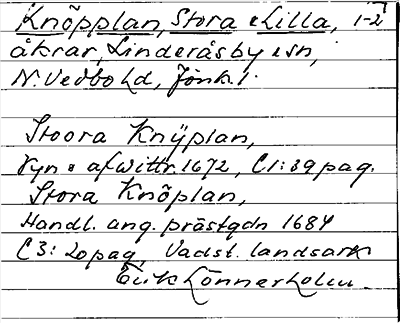 Knöpplan, Stora o Lilla, 1-2
åkrar, Linderåsby o sn,
N. Vedbo hd, Jönk. l.
Stoora Knÿplan,
Syn o afwittr. 1672, C1:39 pag.
Stora Knöplan,
Handl. ang. prästgdn 1684
C3: 20 pag, Vadst. landsark
Erik Lönnerholm.